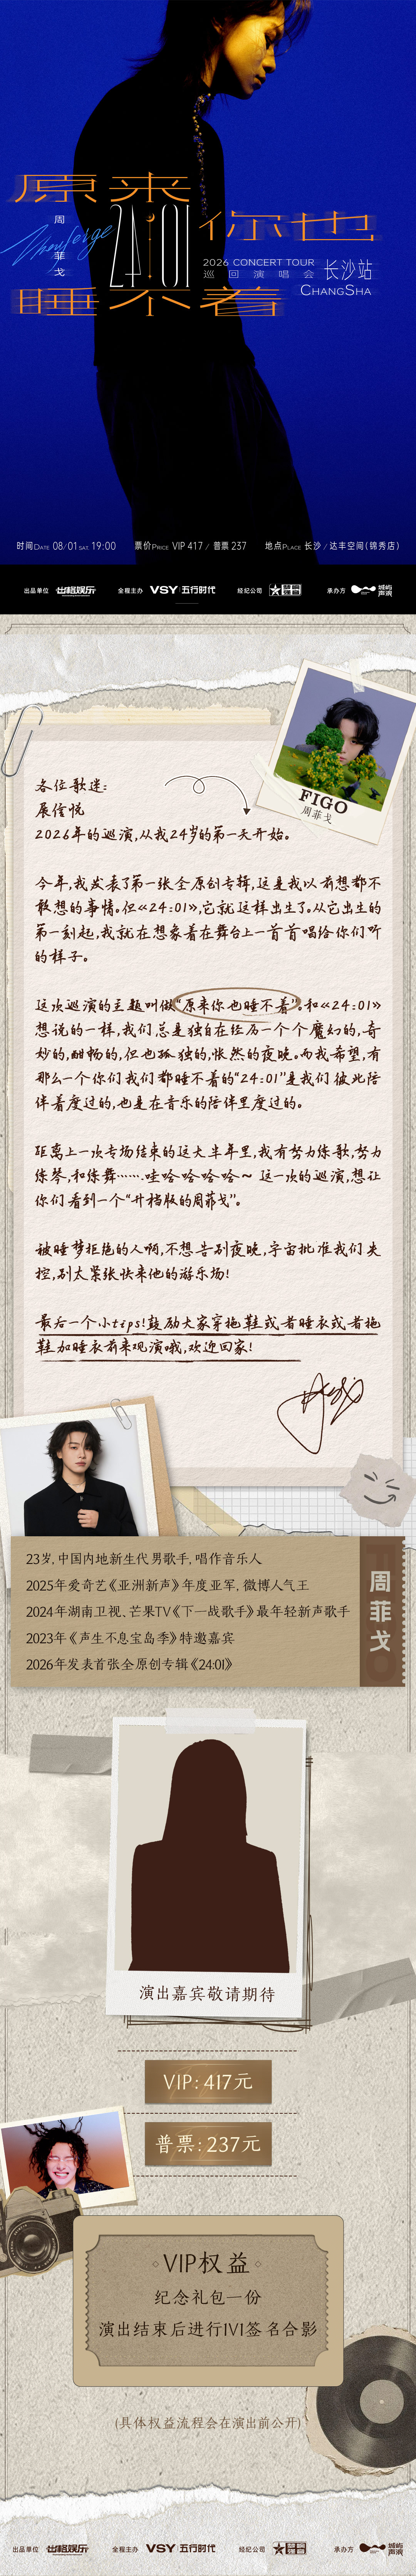 原来
24:01
你也
睡不着
周菲戈
2026 CONCERT TOUR
巡回演唱会
长沙站
CHANGSHA
时间DATE 08/01 SAT. 19:00
票价PRICE VIP 417 / 普票 237
地点PLACE 长沙 / 达丰空间(锦秀店)
出品单位 出格娱乐
全程主办 VSY 五行时代
经纪公司
承办方 城屿声浪
FIGO
周菲戈
各位歌迷:
展信悦
2026年的巡演,从我24岁的第一天开始。
今年,我发表了第一张全原创专辑,这是我以前想都不
敢想的事情。但《24:01》,它就这样出生了。从它出生的
第一刻起,我就在想象着在舞台上一首首唱给你们听
的样子。
这次巡演的主题叫做“原来你也睡不着”。和《24:01》
想说的一样,我们总是独自在经历一个个魔幻的,奇
妙的,酣畅的,但也孤独的,怅然的夜晚。而我希望,有
那么一个你们我们都睡不着的“24:01”是我们彼此陪
伴着度过的,也是在音乐的陪伴里度过的。
距离上一次专场结束的这大半年里,我有努力练歌,努力
练琴,和练舞……哇哈哈哈哈~ 这一次的巡演,想让
你们看到一个“升档版的周菲戈”。
被睡梦拒绝的人啊,不想告别夜晚,宇宙批准我们失
控,别太紧张快来他的游乐场!
最后一个小tips!鼓励大家穿拖鞋或者睡衣或者拖
鞋加睡衣前来观演哦,欢迎回家!
23岁, 中国内地新生代男歌手, 唱作音乐人
2025年爱奇艺《亚洲新声》年度亚军, 微博人气王
2024年湖南卫视、芒果TV《下一战歌手》最年轻新声歌手
2023年《声生不息宝岛季》特邀嘉宾
2026年发表首张全原创专辑《24:01》
周菲戈
演出嘉宾敬请期待
VIP: 417元
普票: 237元
VIP权益
纪念礼包一份
演出结束后进行1V1签名合影
(具体权益流程会在演出前公开)
出品单位 出格娱乐
全程主办 VSY 五行时代
经纪公司
承办方 城屿声浪